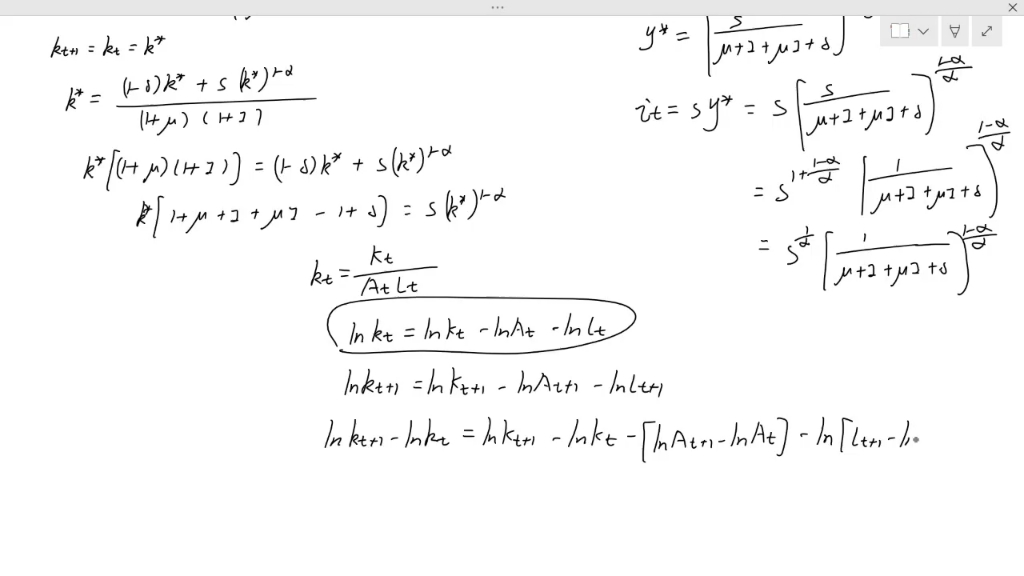 kt+1 = kt = k*
k* = (1-δ)k* + s(k*)^1-α / (1+μ)(1+I)
k*[(1+μ)(1+I)] = (1-δ)k* + s(k*)^1-α
k*[1+μ+I+μI-1+δ] = s(k*)^1-α
kt = Kt / AtLt
ln kt = ln Kt - ln At - ln Lt
ln kt+1 = ln Kt+1 - ln At+1 - ln Lt+1
ln kt+1 - ln kt = ln Kt+1 - ln Kt - [ln At+1 - ln At] - ln[Lt+1 - l
y* = [s / μ+I+μI+δ]
it = sy* = s[s / μ+I+μI+δ]^1-α/α
= s^1+1-α/α [1 / μ+I+μI+δ]^1-α/α
= s^1/α [1 / μ+I+μI+δ]^1-α/α